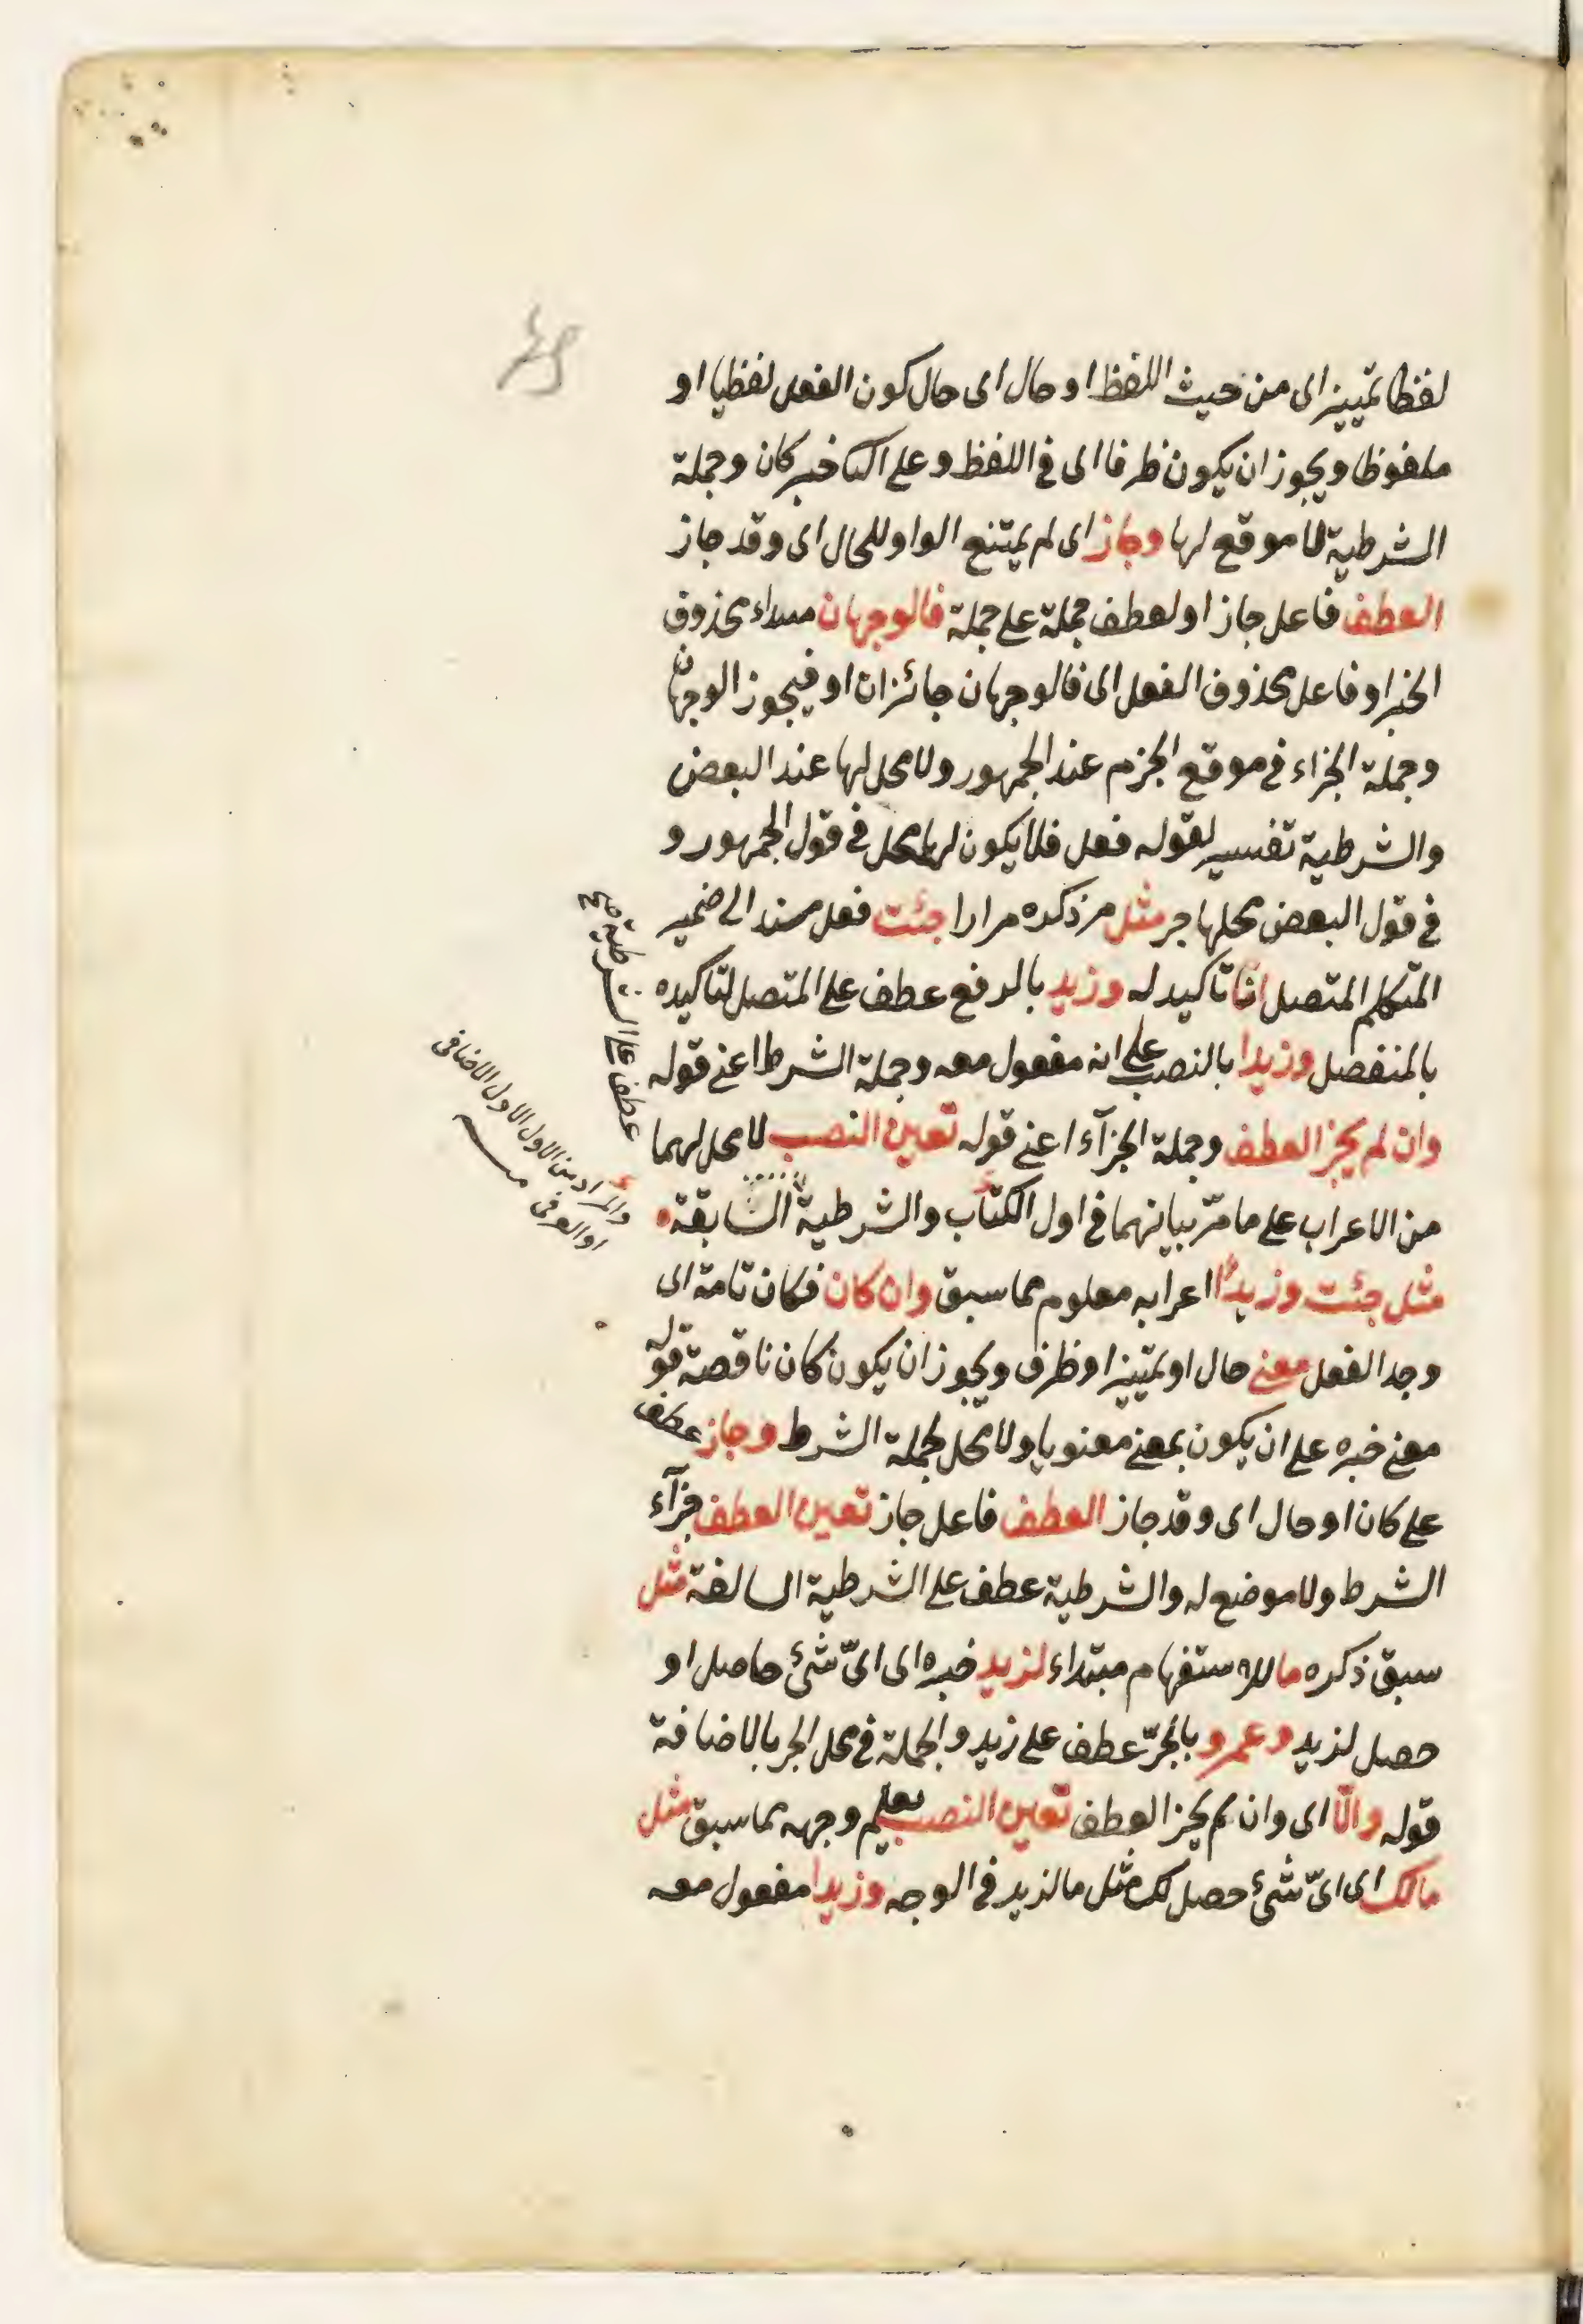 لفظا تمييز اى من حيث اللفظ او حال اى حال كون الفعل لفظيا او
ملفوظا ويجوز ان يكون ظرفا اى فى اللفظ وعلى الثا خبر كان وجملة
الشرطية لا موقع لها وجاز اى لم يمتنع الواو للحال اى وقد جاز
العطف فاعل جاز او لعطف جملة على جملة فالوجهان مبتداء محذوف
الخبر او فاعل محذوف الفعل اى فالوجهان جائزان او فيجوز الوجهان
وجملة الجزاء فى موقع الجزم عند الجمهور ولا محل لها عند البعض
والشرطية تفسير لقوله فعل فلا يكون لها محل فى قول الجمهور و
فى قول البعض محلها جر مثل مر ذكره مرارا جئت فعل مسند الى ضمير
المتكلم المتصل انا تاكيد له وزيد بالرفع عطف على المتصل لتاكيده
بالمنفصل وزيدا بالنصب على انه مفعول معه وجملة الشرط اعنى قوله
وان لم يجز العطف وجملة الجزآء اعنى قوله تعين النصب لا محل لهما
من الاعراب على ما مرّ بيانهما فى اول الكتاب والشرطية السابقة
مثل جئت وزيدًا اعرابه معلوم مما سبق وان كان فكان تامة اى
وجد الفعل معنى حال او تمييز او ظرف ويجوز ان يكون كان ناقصة قوله
معنى خبره على ان يكون بمعنى معنويا ولا محل لجملة الشرط وجاز عطف
على كان او حال اى وقد جاز العطف فاعل جاز تعين العطف جزآء
الشرط ولا موضع له والشرطية عطف على الشرطية السالفة مثل
سبق ذكره ما للاستفهام مبتداء لزيد خبره اى اىّ شئ حاصل او
حصل لزيد وعمرو بالجرّ عطف على زيد والجملة فى محل الجر بالاضافة
قوله والّا اى وان لم يجز العطف تعين النصب يعلم وجهه مما سبق مثل
مالك اى اىّ شئ حصل لك مثل ما لزيد فى الوجه وزيدا مفعول معه
عطف على الشرطية صح
والمراد من الاول الاول الاضافى
او العرفى